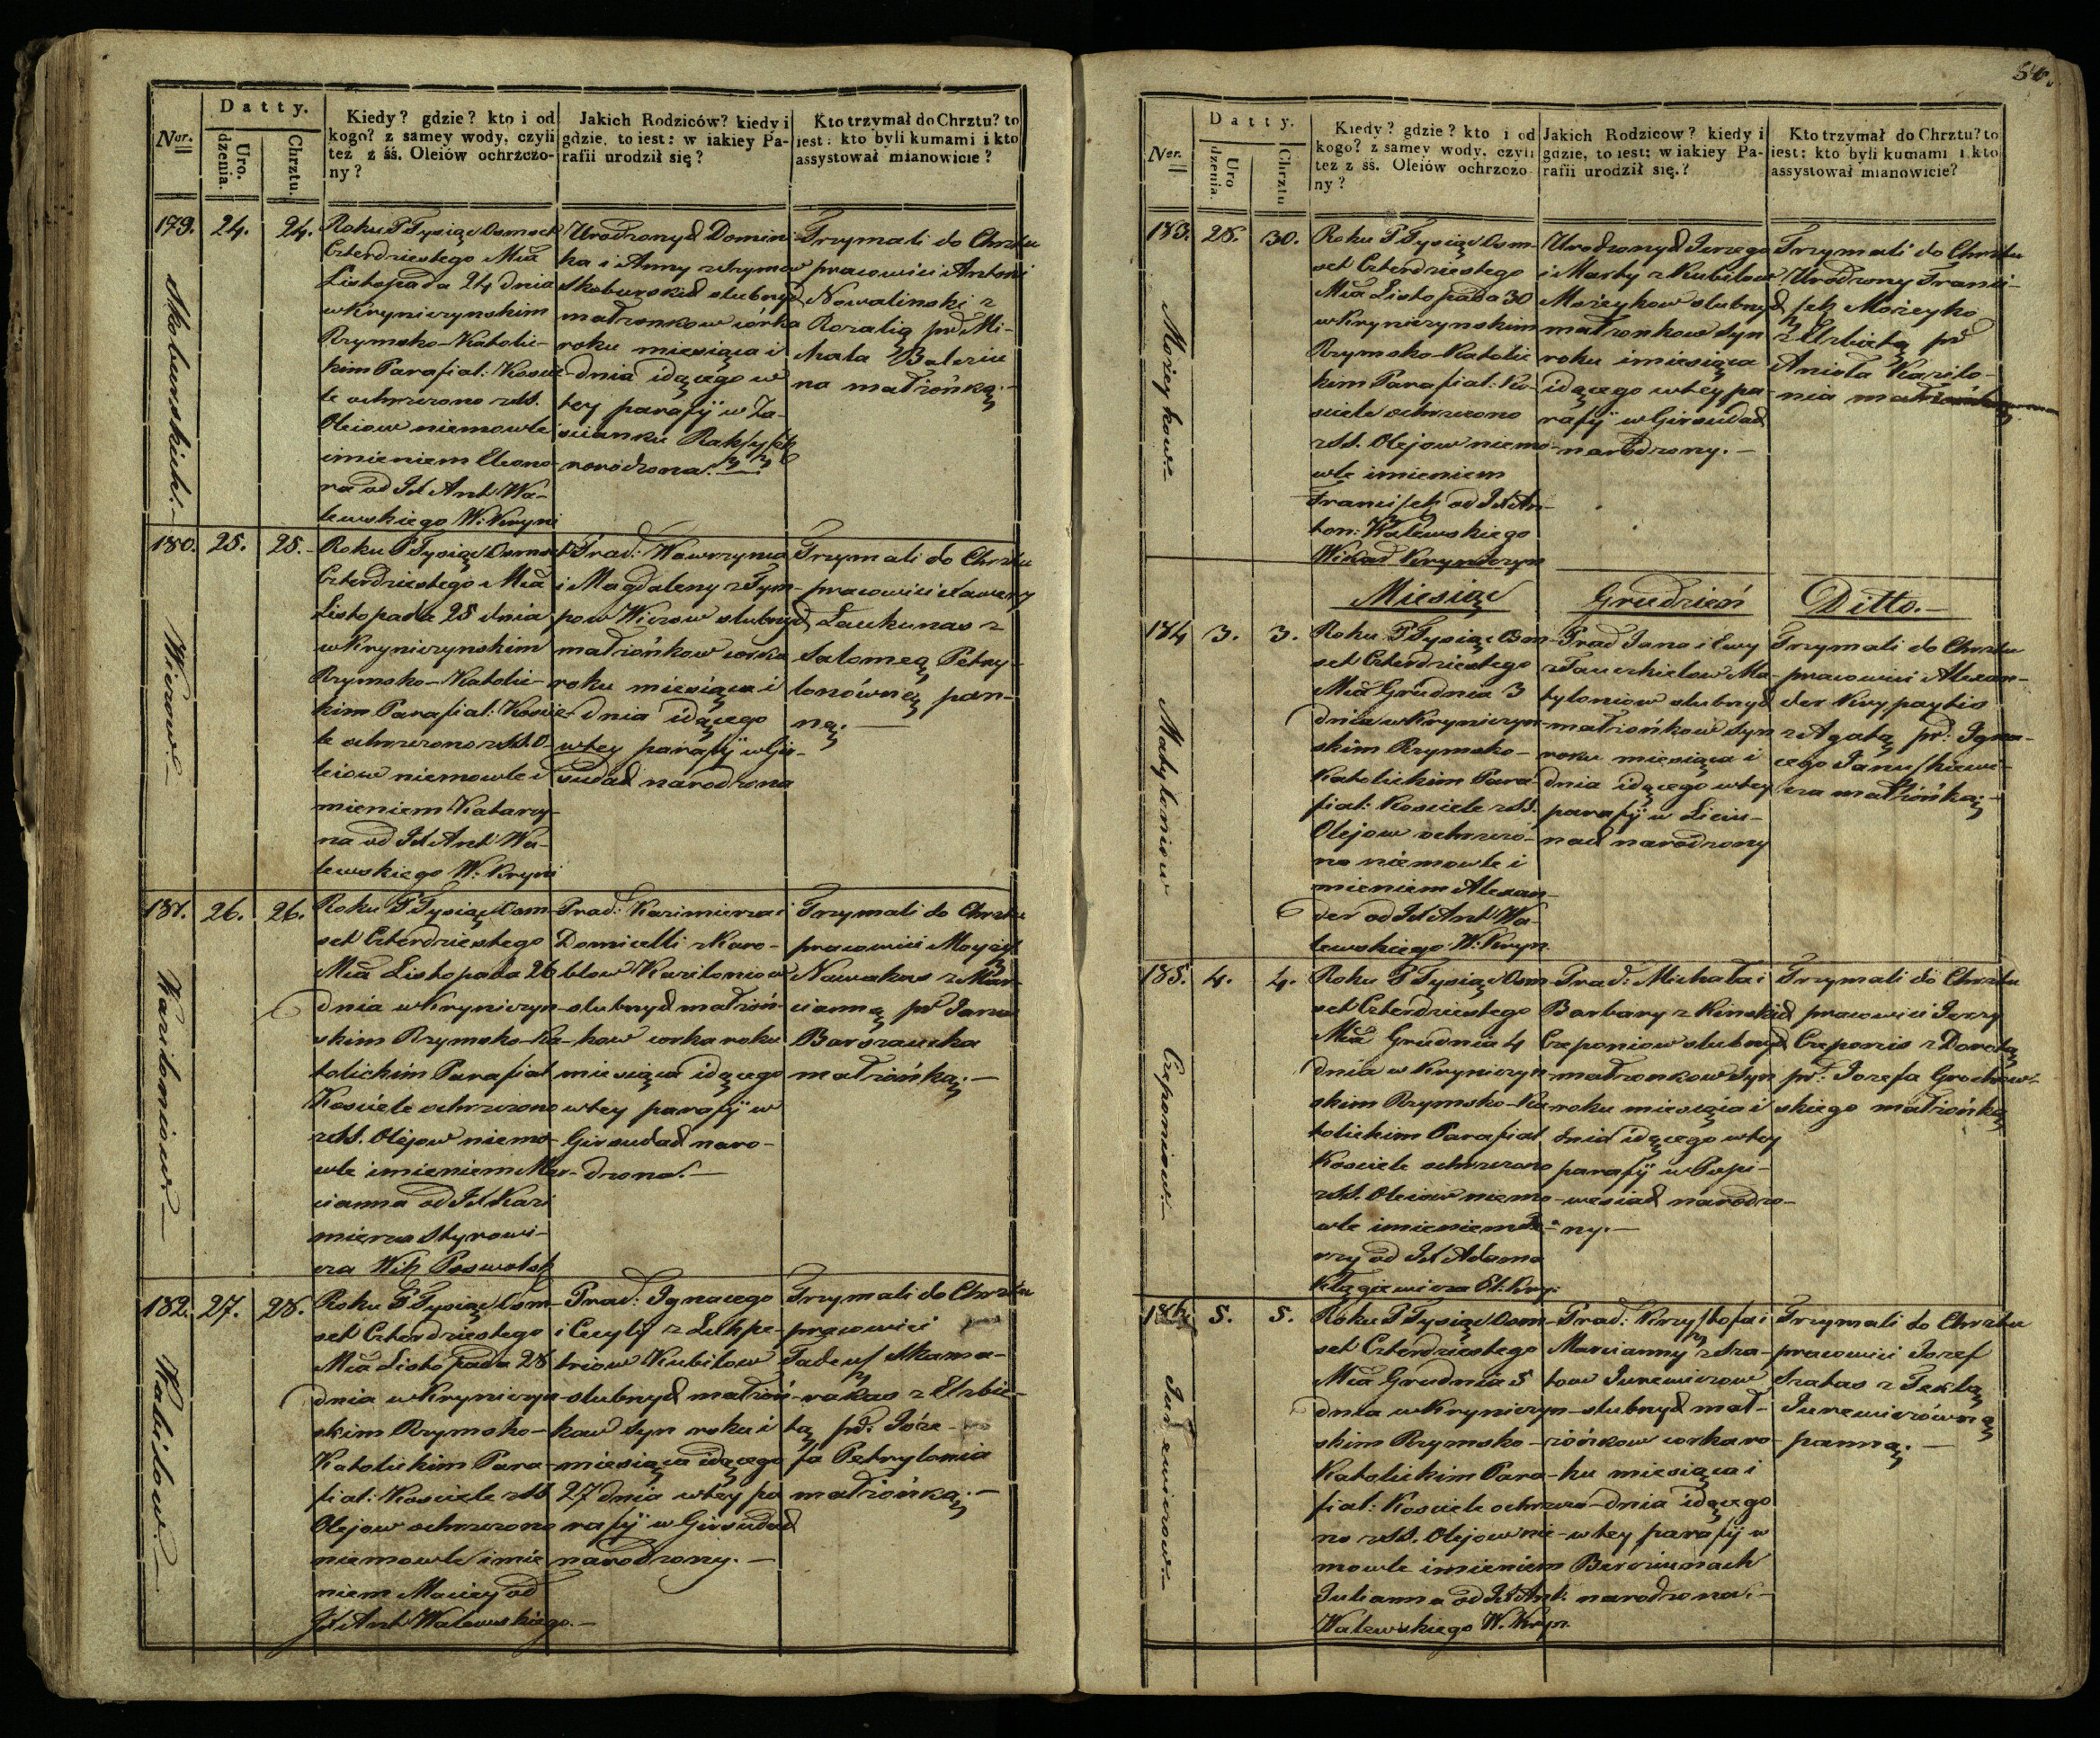 54.
Datty.
Nor.
Uro. dzenia.
Chrztu.
Kiedy? gdzie? kto i od
kogo? z samey wody, czyli
też z śś. Oleiów ochrzczo-
ny?
Jakich Rodziców? kiedy i
gdzie, to iest: w iakiey Pa-
rafii urodził się?
Kto trzymał do Chrztu? to
iest: kto byli kumami i kto
assystował mianowicie?
179.
Skoburskich.
24.
24.
Roku P Tysiąc Osmset
Czterdziestego Mca
Listopada 24 dnia
w Kryniczynskim
Rzymsko-Katolic-
kim Parafial: Koscie-
le ochrzczono z SS.
Oleiow niemowle
imieniem Eleono-
ra od Jd Ant Wa-
lewskiego W: Kryni
Urodzonych Domini
ka i Anny
Skoburskich slubnych
małzonkow córka
roku miesiąca i
dnia idącego w
tey parafij w Za-
scianku
narodzona.
Trzymali do Chrztu
pracowici Antoni
Nowalinski z
Rozalią pd Mi-
chała
na małżonką.-
180.
Wierow.
25.
25.
Roku P Tysiąc Osmset
Czterdziestego Mca
Listopada 25 dnia
w Kryniczynskim
Rzymsko-Katolic-
kim Parafial: Koscie-
le ochrzczono z SS. O-
leiow niemowle i
mieniem Katarzy-
na od Jd Ant Wa-
lewskiego W: Kryni
Prad: Wawrzynca
i Magdaleny z Szym-
pow Wierow slubnych
małżonkow corka
roku miesiąca i
dnia idącego
w tey parafij w Gir-
sudach narodzona
Trzymali do Chrztu
pracowici Xawery
Laukunas z
Salomeą Petry-
lonówną pan-
ną.-
181.
Kazilomiow
26.
26.
Roku P Tysiąc Osm-
set Czterdziestego
Mca Listopada 26
dnia w Kryniczyn-
skim Rzymsko-Ka-
tolickim Parafial
Kosciele ochrzczono
z SS. Olejow niemo-
wle imieniem Mar-
cianna od Jd Kazi
mierza Styrowi-
cza Wik Poswolsk
Prad: Kazimierza i
Domicelli z Karo-
blow Kaziloniow
slubnych małżon-
kow corka roku
miesiąca idącego
w tey parafij w
Girsudach naro-
dzona.-
Trzymali do Chrztu
pracowici Moyżesz
Nowakas z Mar-
cianną pd Jana
Barszaucka
małżonką.-
182.
Kubilow.
27.
28.
Roku P Tysiąc Osm-
set Czterdziestego
Mca Listopada 28
dnia w Kryniczyn-
skim Rzymsko-
Katolickim Para-
fial: Kosciele z SS
Olejow ochrzczono
niemowle imie
niem Maciey od
Jd Ant Walewskiego.-
Prad: Ignacego
i Cecylij z Lukpe-
triow Kubilow
slubnych małżon-
kow syn roku i
miesiąca idącego
27 dnia w tey pa
rafij w Girsudach
narodzony.-
Trzymali do Chrztu
pracowici
Tadeusz Skama-
rakas z Elzbie-
tą pd: Józe-
fa Petrylonia
małżonką.-
Datty.
Ner.
Uro dzenia.
Chrztu
Kiedy? gdzie? kto i od
kogo? z samey wody, czyli
też z śś. Oleiów ochrzczo
ny?
Jakich Rodzicow? kiedy i
gdzie, to iest: w iakiey Pa-
rafii urodził się.?
Kto trzymał do Chrztu? to
iest: kto byli kumami i kto
assystował mianowicie?
183.
Możeykow.
28.
30.
Roku P Tysiąc Osm-
set Czterdziestego
Mca Listopada 30
w Kryniczynskim
Rzymsko-Katolic
kim Parafial: Ko-
sciele ochrzczono
z SS. Olejow niemo-
wle imieniem
Franciszek od Jd An-
ton: Walewskiego
Wikar Kryniczyn
Urodzonych Jerzego
i Marty z Kubilow
Możeykow slubnych
małżonkow syn
roku i miesiąca
idącego w tey pa-
rafij w Girsudach
narodzony.-
Trzymali do Chrztu
Urodzony Franci-
szek Możeyko
z Elzbietą pd
Anioła Kazilo-
nia małżonką
Miesiąc Grudzień Ditto.-
184
Matyloniow
3.
3.
Roku P Tysiąc Osm-
set Czterdziestego
Mca Grudnia 3
dnia w Kryniczyn-
skim Rzymsko-
Katolickim Para-
fial: Kosciele z SS.
Olejow ochrzczo-
no niemowle i
mieniem Alexan-
der od Jd Ant Wa-
lewskiego W: Kryn
Prad Jana i Ewy
z Tauczkielow Ma-
tyloniow slubnych
małżonkow syn
roku miesiąca i
dnia idącego w tey
parafij w Liciu-
nach narodzony
Trzymali do Chrztu
pracowici Alexan-
der Krypaytis
z Agatą pd: Igna-
cego Januszkiewi-
cza małżonką.-
185.
Czeponiow.
4.
4.
Roku P Tysiąc Osm
set Czterdziestego
Mca Grudnia 4
dnia w Kryniczyn
skim Rzymsko-Ka
tolickim Parafial
Kosciele ochrzczono
z SS. Oleiow niemo
wle imieniem Je-
rzy od Jd Adama
Klągiewicza Pl: Kry:
Prad: Michała i
Barbary z Rimskich
Czeponiow slubnych
małżonkow syn
roku miesiąca i
dnia idącego w tey
parafij w Popi-
wesiach narodzo-
ny.-
Trzymali do Chrztu
pracowici Jerzy
Czeponis z Dorotą
pd: Jozefa Grochow-
skiego małżonką
186.
Jurewiczow.
5.
5.
Roku P Tysiąc Osm
set Czterdziestego
Mca Grudnia 5
dnia w Kryniczyn-
skim Rzymsko-
Katolickim Para-
fial: Kosciele ochrzczo-
no z SS. Olejow nie-
mowle imieniem
Julianna od Jd Ant:
Walewskiego W. Kryn.
Prad: Krzysztofa i
Marcianny z Sza-
tow Jurewiczow
slubnych mał-
żonkow corka ro-
ku miesiąca i
dnia idącego
w tey parafij w
Berciunach
narodzona.-
Trzymali do Chrztu
pracowici Jozef
Szatas z Teklą
Jurewiczówną
panną.-